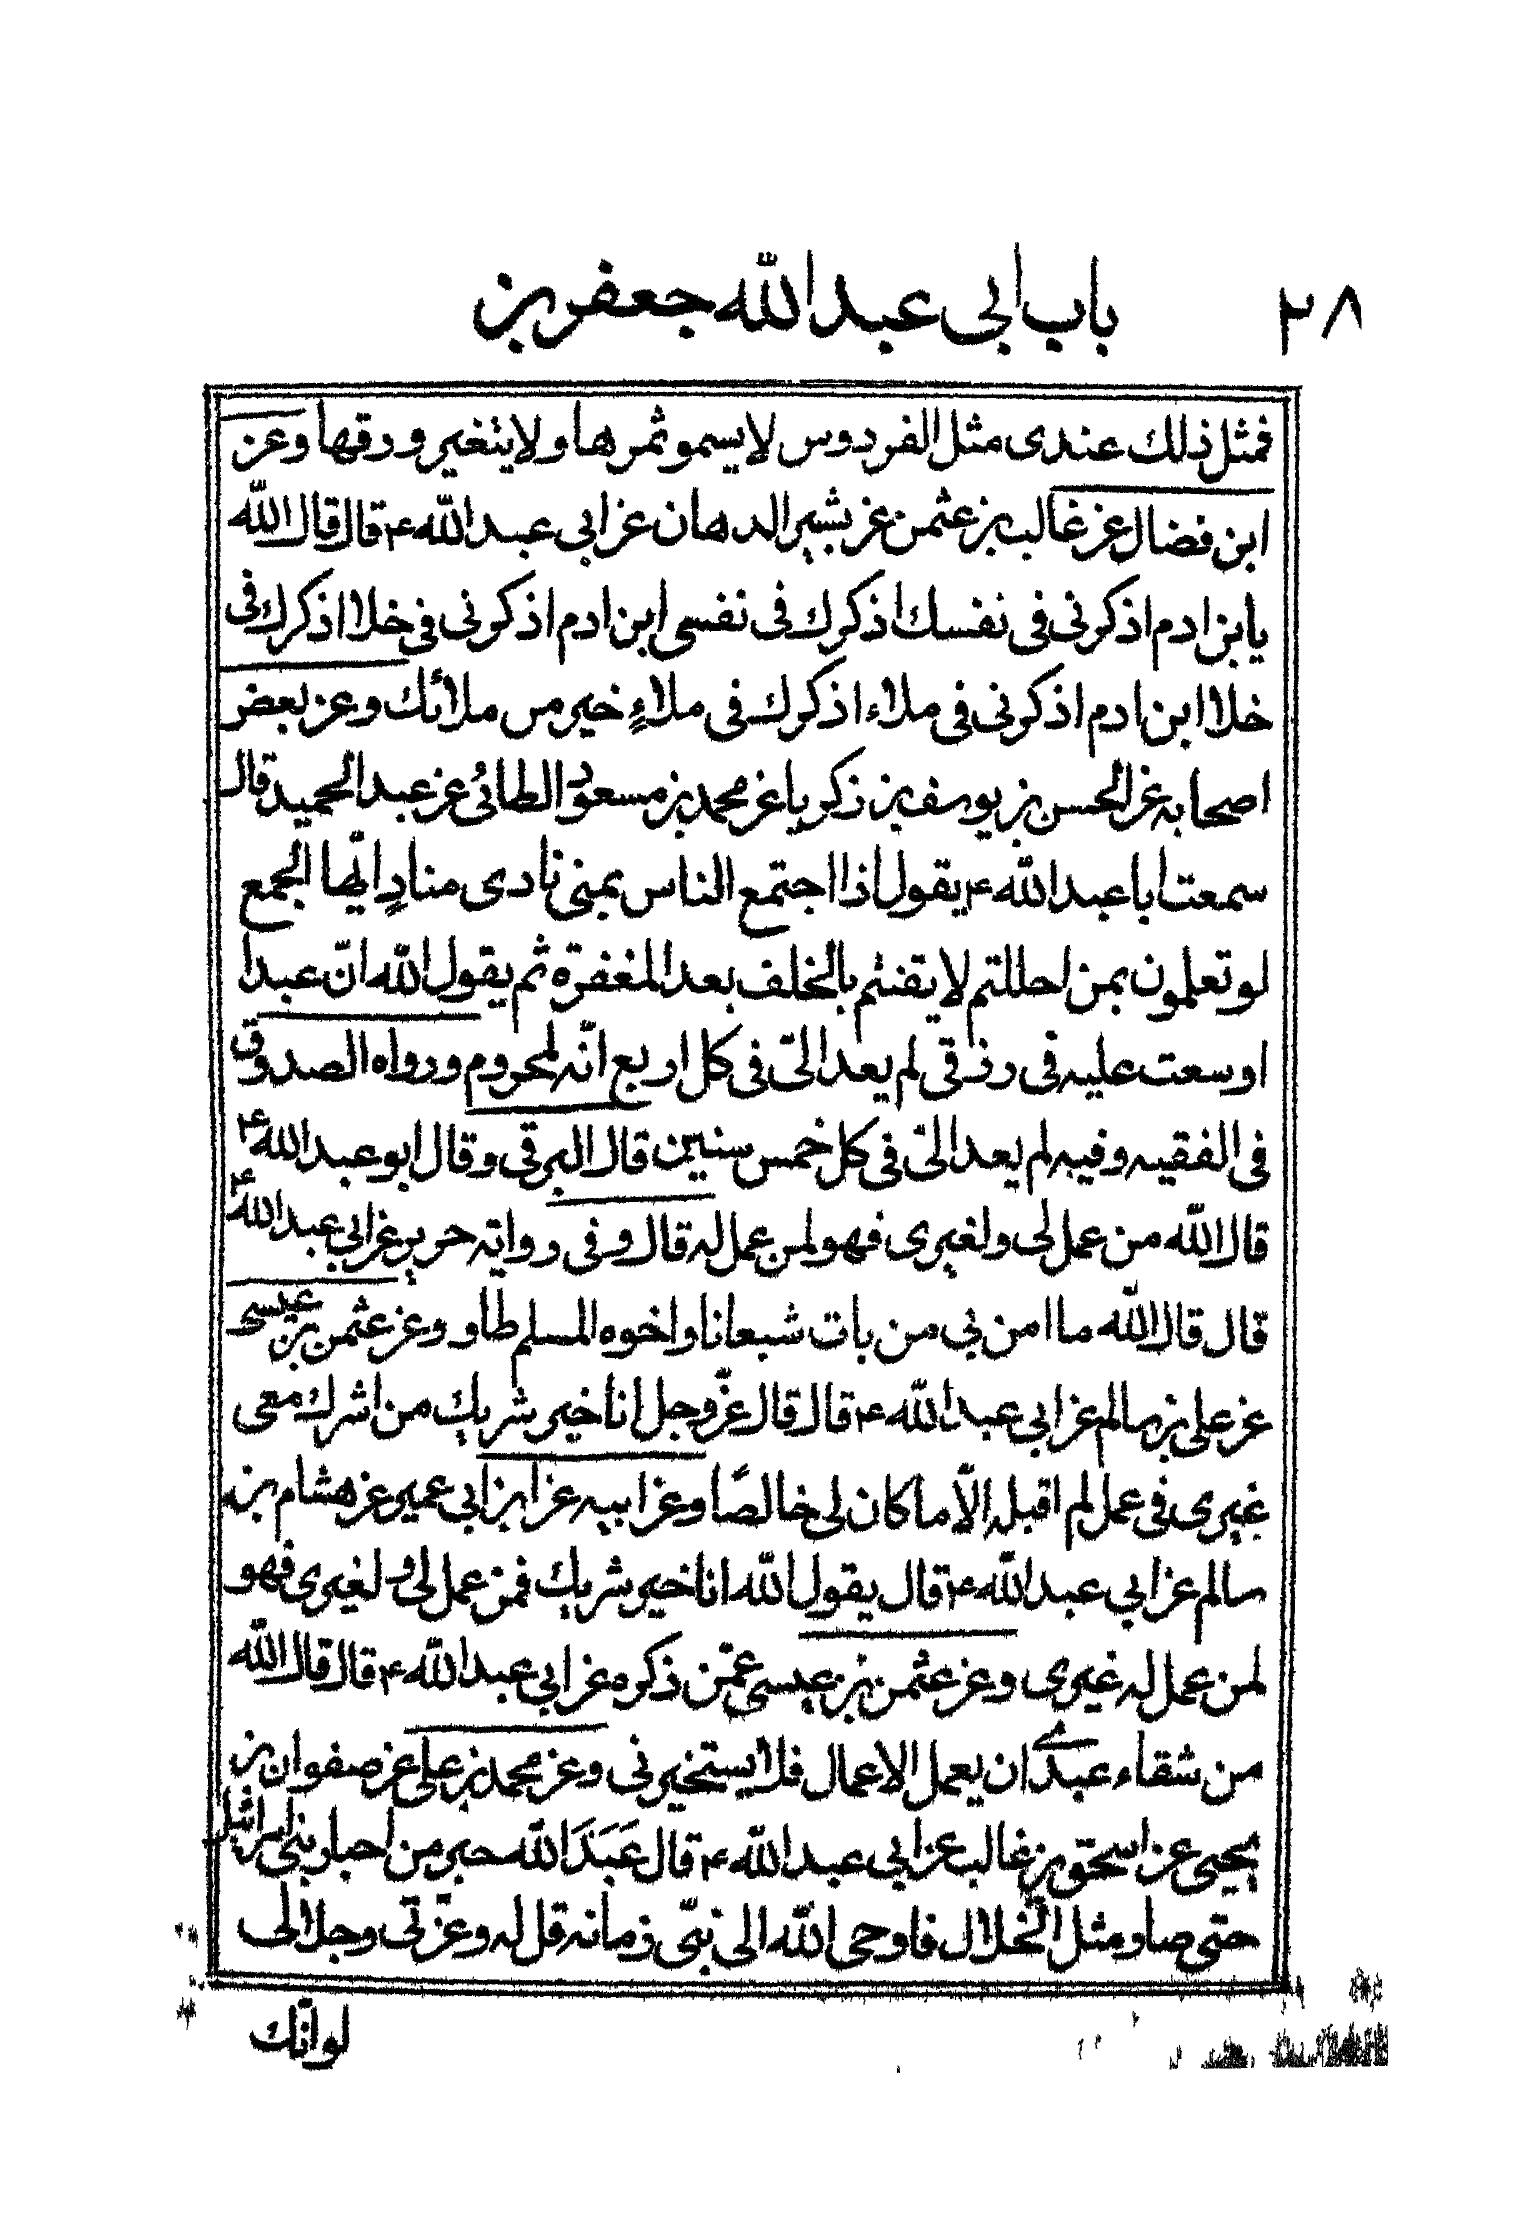 ٢٨
باب ابى عبد الله جعفر بن
فمثل ذلك عندى مثل الفردوس لا يسمو ثمرها ولا يتغير ورقها وعن
ابن فضال عن غالب بن عثمن عن بشير الدهان عن ابى عبد الله ۴ قال قال الله
يا بن ادم اذكرنى فى نفسك اذكرك فى نفسى ابن ادم اذكرنى فى خلاا اذكرك فى
خلاا ابن ادم اذكرنى فى ملاء اذكرك فى ملاءٍ خير من ملائك وعن بعض
اصحابه عن الحسن بن يوسف بن زكريا عن محمد بن مسعود الطائى عن عبد الحميد قال
سمعت ابا عبد الله ۴ يقول اذا اجتمع الناس بمنى نادى منادٍ ايّها الجمع
لو تعلمون بمن احللتم لايقنتم بالخلف بعد المغفرة ثم يقول الله انّ عبدا
اوسعت عليه فى رزقى لم يعد الىّ فى كل اربع انّه لمحروم ورواه الصدوق
فى الفقيه وفيه لم يعد الىّ فى كل خمس سنين قال البرقى وقال ابو عبد الله ۴
قال الله من عمل لى ولغيرى فهو لمن عمل له قال وفى رواية حريز عن ابى عبد الله ۴
قال قال الله ما امن بى من بات شبعانا واخوه المسلم طاو وعن عثمن بن عيسى
عن على بن سالم عن ابى عبد الله ۴ قال قال عزّ وجل انا خير شريك من اشرك معى
غيرى فى عمل لم اقبله الّا ما كان لى خالصًا وعن ابيه عن ابن ابى عمير عن هشام بن
سالم عن ابى عبد الله ۴ قال يقول الله انا خير شريك فمن عمل لى ولغيرى فهو
لمن عمل له غيرى وعن عثمن بن عيسى عمّن ذكره عن ابى عبد الله ۴ قال قال الله
من شقاء عبدى ان يعمل الاعمال فلا يستخيرنى وعن محمد بن على عن صفوان بن
يحيى عن اسحق بن غالب عن ابى عبد الله ۴ قال عَبَدَ الله حبر من احبار بنى اسرائيل
حتى صار مثل الخلال فاوحى الله الى نبىّ زمانه قل له وعزّتى وجلالى
لو انّك